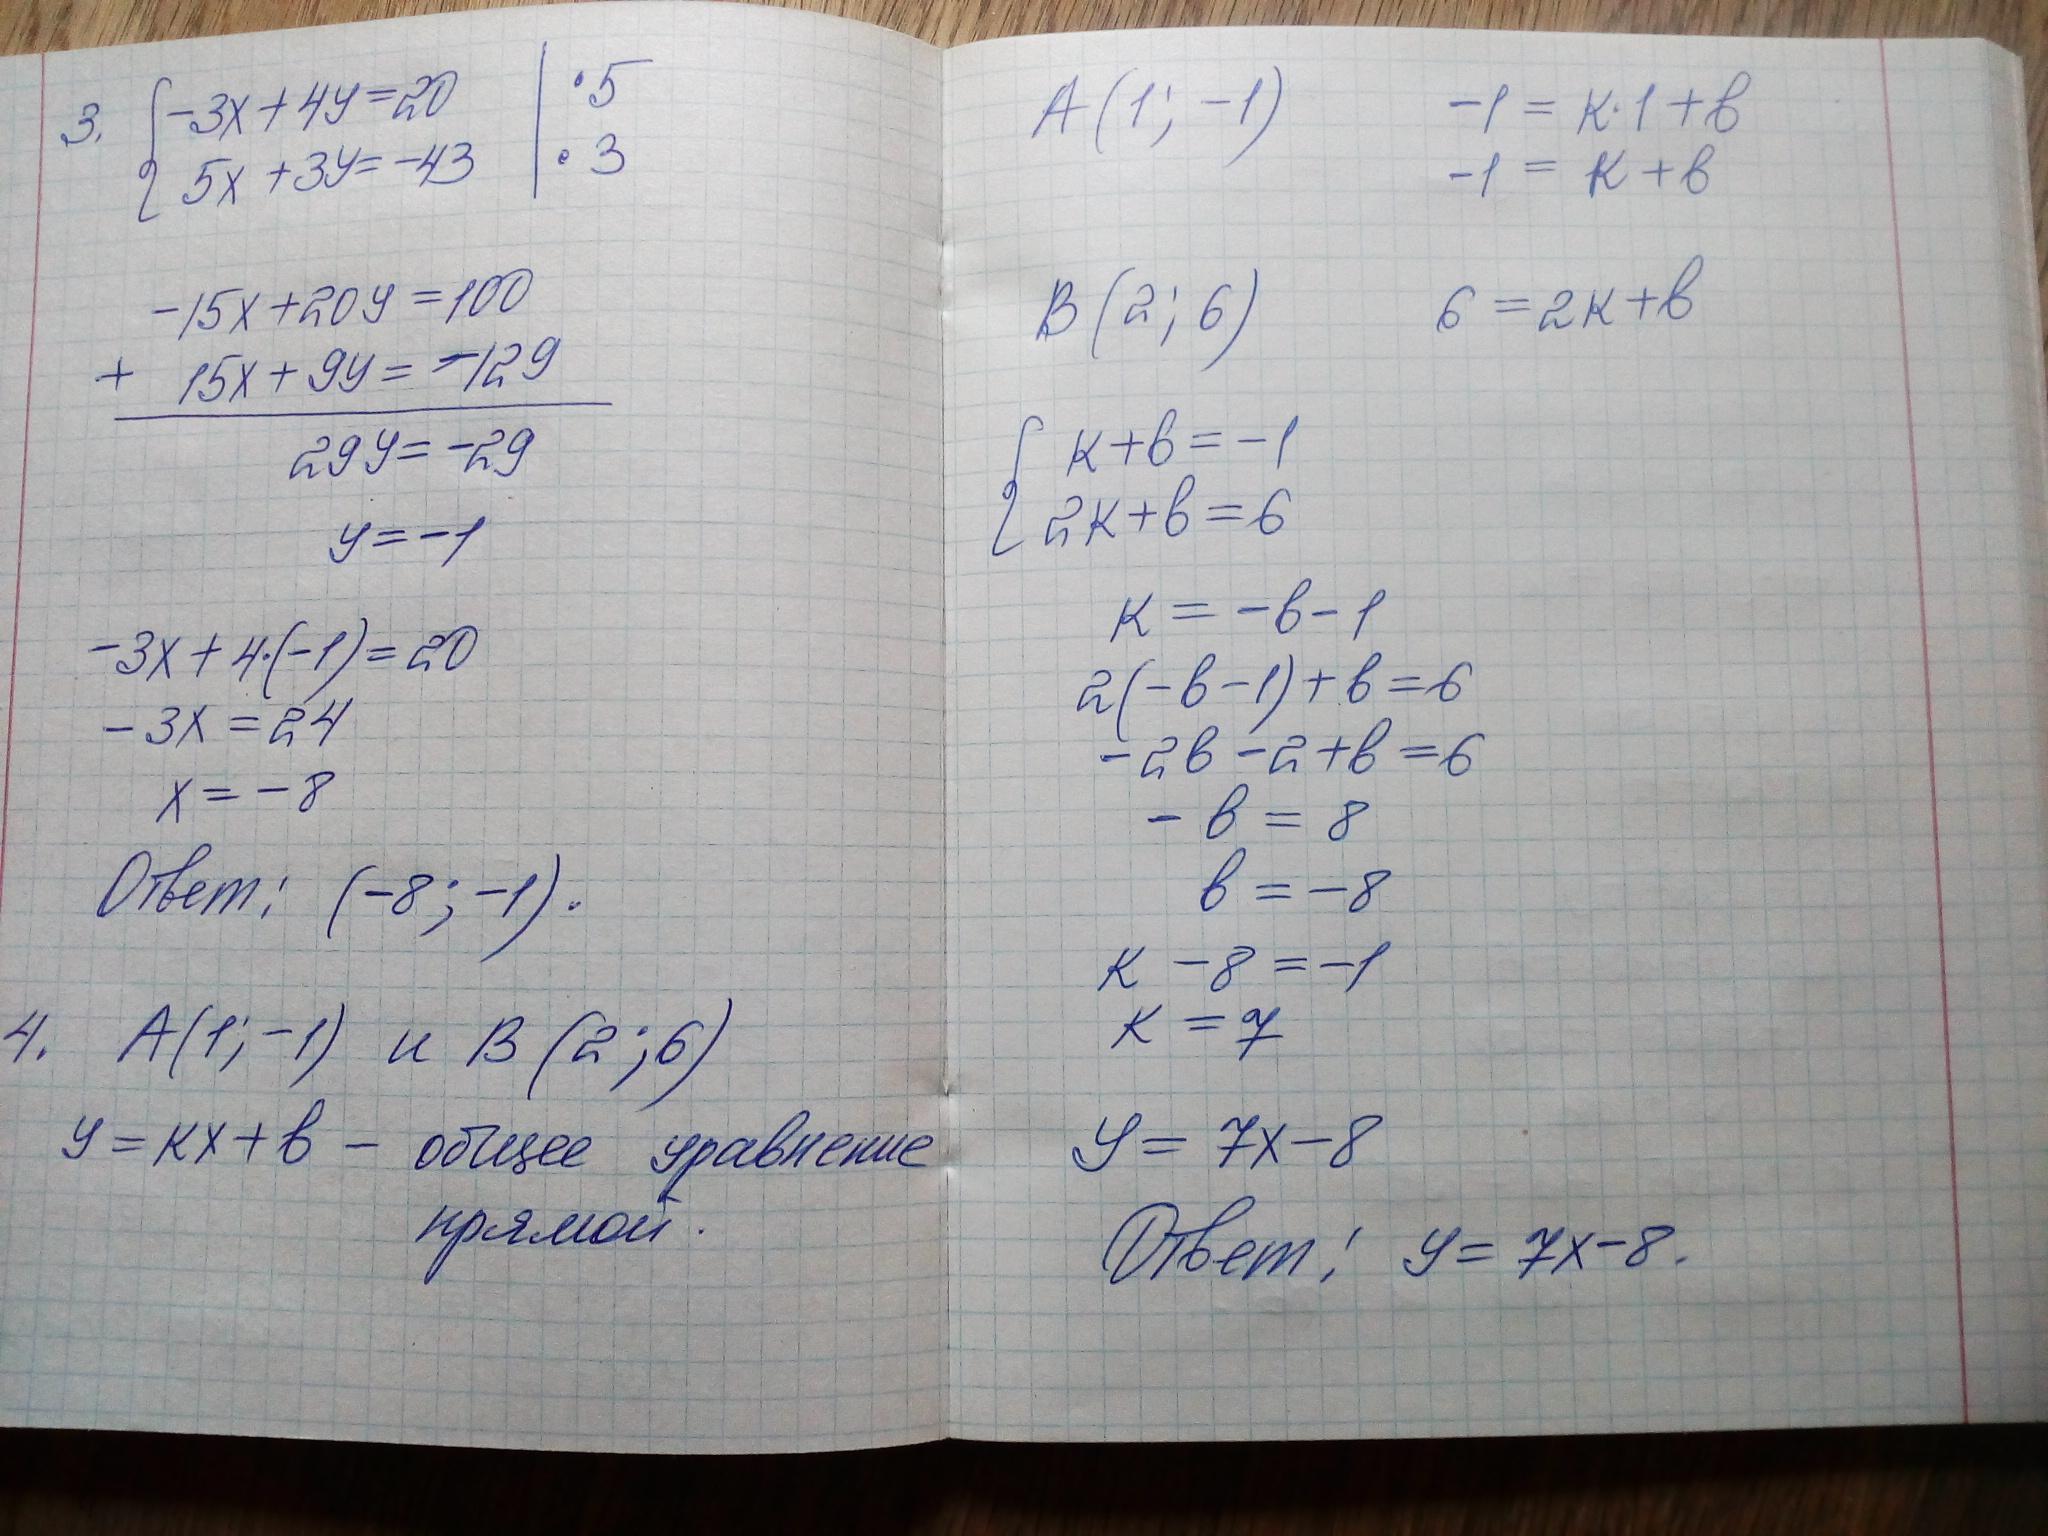 3. { -3x + 4y = 20 | · 5
5x + 3y = -43 | · 3
-15x + 20y = 100
+ 15x + 9y = -129
29y = -29
y = -1
-3x + 4·(-1) = 20
-3x = 24
x = -8
Ответ: (-8; -1).
4. A(1; -1) и B(2; 6)
y = кx + в - общее уравнение
прямой.
A(1; -1) -1 = к·1 + в
-1 = к + в
B(2; 6) 6 = 2к + в
{ к + в = -1
2к + в = 6
к = -в - 1
2(-в - 1) + в = 6
-2в - 2 + в = 6
-в = 8
в = -8
к - 8 = -1
к = 7
y = 7x - 8
Ответ: y = 7x - 8.